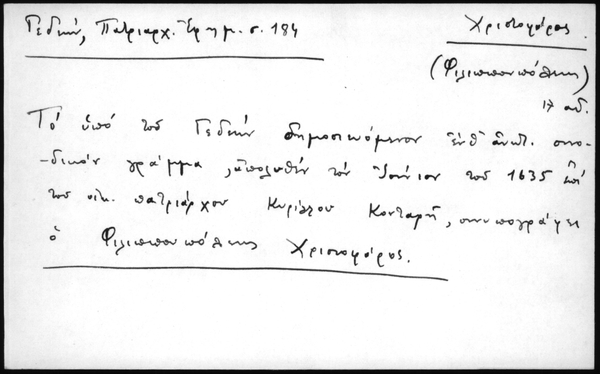 Γεδεών, Πατριαρχ. Ἐφημ. σ. 184
Χριστοφόρος.
(Φιλιππουπόλεως)
17 αἰ.
Τό ὑπό τοῦ Γεδεών δημοσιευόμενον ἔνθ' ἀνωτ. συνο-
-δικόν γράμμα, ἀπολυθέν τόν Ἰούνιον τοῦ 1635 ἐπί
τοῦ οἰκ. πατριάρχου Κυρίλλου Κονταρῆ, συνυπογράφει
ὁ Φιλιππουπόλεως Χριστοφόρος.